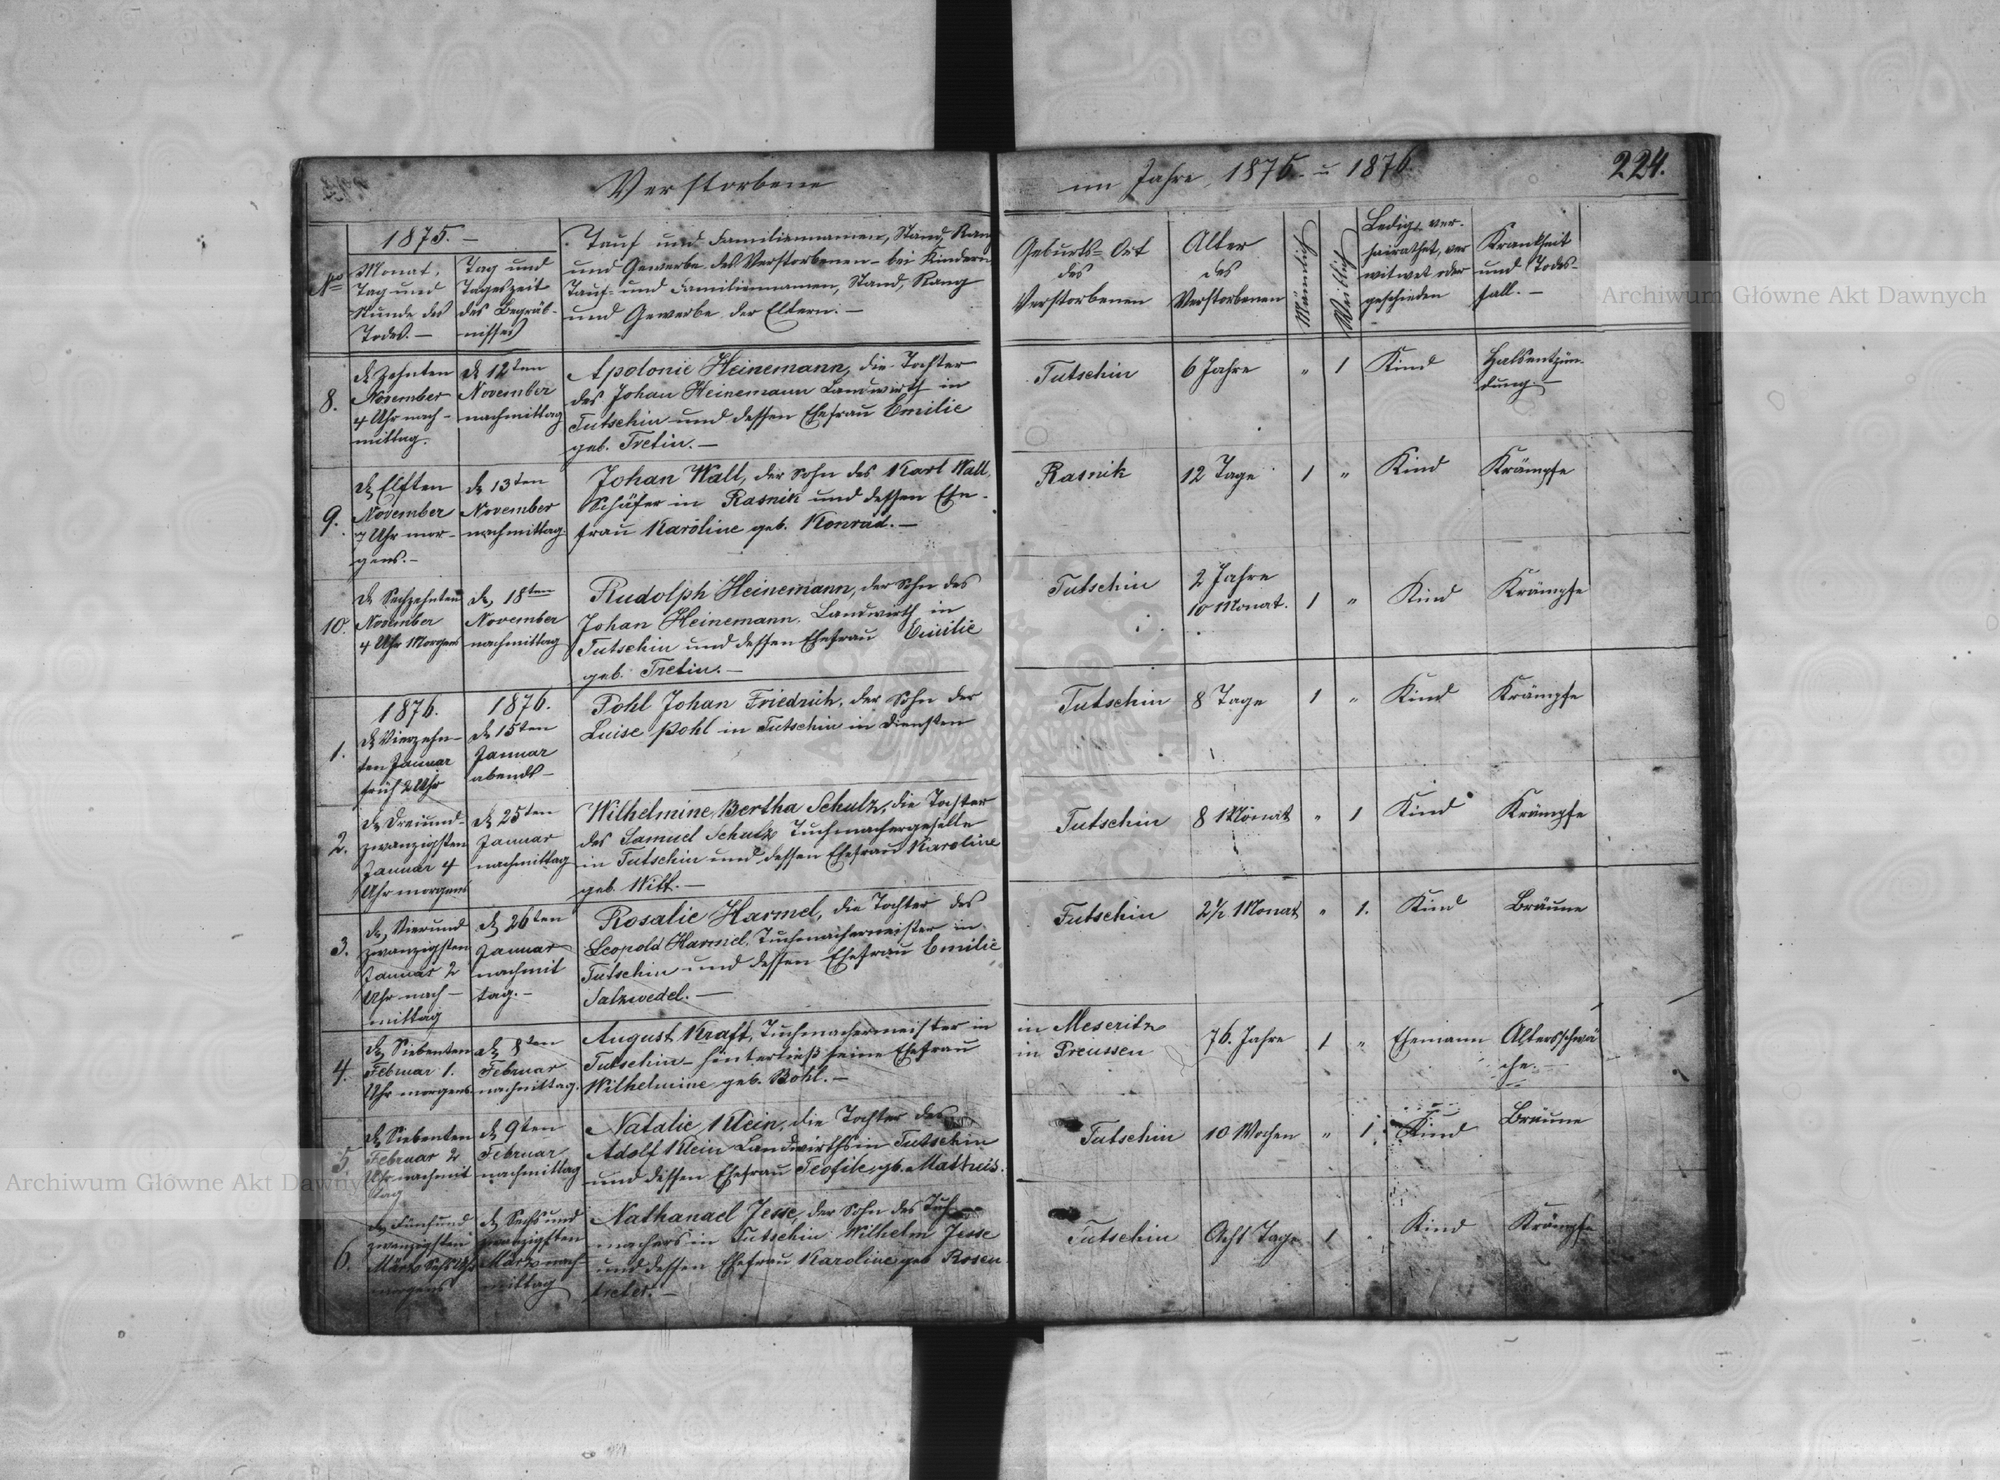 Verstorbene
im Jahre 1875 u 1876.
224.
No
1875. —
Monat,
Tag und
Stunde des
Todes. —
Tag und
Tageszeit
des Begräb-
nisses
Tauf und Familiennamen, Stand, Rang
und Gewerbe des Verstorbenen – bei Kindern
Tauf- und Familiennamen, Stand, Rang
und Gewerbe der Eltern. —
Geburts-Ort
des
Verstorbenen
Alter
des
Verstorbenen
Männlich
Weiblich
Ledig, ver-
heirathet, ver
witwet oder
geschieden
Krankheit
und Todes-
fall. —
8.
d. Zehnten
November
4 Uhr nach-
mittag.
d. 12ten
November
nachmittag
Apolonie Heinemann, die Tochter
des Johan Heinemann Landwirth in
Tutschin und dessen Ehefrau Emilie
geb. Tretin. —
Tutschin
6 Jahre
„
1
Kind
Halsentzün-
dung. —
9.
d. Elften
November
7 Uhr mor-
gens. —
d. 13ten
November
nachmittag
Johan Wall, der Sohn des Karl Wall,
Schäfer in Rasnik und dessen Ehe-
frau Karoline geb. Konrad. —
Rasnik
12 Tage
1
„
Kind
Krämpfe
10.
d. Sechzehnten
November
4 Uhr Morgens
d. 18ten
November
nachmittag
Rudolph Heinemann, der Sohn des
Johan Heinemann, Landwirth in
Tutschin und dessen Ehefrau Emilie
geb. Tretin. —
Tutschin
2 Jahre
10 Monat.
1
„
Kind
Krämpfe
1.
1876.
d. Vierzehn-
ten Januar
früh 2 Uhr
1876.
d. 15ten
Januar
abends —
Pohl Johan Friedrich, der Sohn der
Luise Pohl in Tutschin in Diensten
Tutschin
8 Tage
1
„
Kind
Krämpfe
2.
d. Dreiund-
zwanzigsten
Januar 4
Uhr morgens
d. 25ten
Januar
nachmittag
Wilhelmine, Bertha Schulz, die Tochter
des Samuel Schulz Tuchmachergeselle
in Tutschin und dessen Ehefrau Karoline
geb. Witt. —
Tutschin
8 Monat
„
1
Kind
Krämpfe
3.
d. Vierund
zwanzigsten
Januar 2
Uhr nach-
mittag
d. 26ten
Januar
nachmit
tag. —
Rosalie Harmel, die Tochter des
Leopold Harmel, Tuchmachermeister in
Tutschin und dessen Ehefrau Emilie
Salzwedel. —
Tutschin
2½ Monat
„
1.
Kind
Bräune
4.
d. Siebenten
Februar 1.
Uhr morgens
d. 8ten
Februar
nachmittag.
August Kraft, Tuchmachermeister in
Tutschin – hinterließ seine Ehefrau
Wilhelmine geb. Bohl. —
in Meseritz
in Preussen
76. Jahre
1
„
Ehemann
Altersschwä
che. —
5.
d. Siebenten
Februar 2
Uhr nachmit
tag
d. 9ten
Februar
nachmittag
Natalie Klein, die Tochter des
Adolf Klein Landwirths in Tutschin
und dessen Ehefrau Teofile, gb.
Tutschin
10 Wochen
„
1.
Kind
Bräune
6.
d. Fünfund
zwanzigsten
März Sechs Uhr
morgens
d. Sechsund
zwanzigsten
März nach
mittag
Nathanael Jesse, der Sohn des Tuch
machers in Tutschin Wilhelm Jesse
und dessen Ehefrau Karoline geb Rosen
treter. —
Tutschin
Acht Tage
1
Kind
Krämpfe
Archiwum Główne Akt Dawnych
Archiwum Główne Akt Dawnych